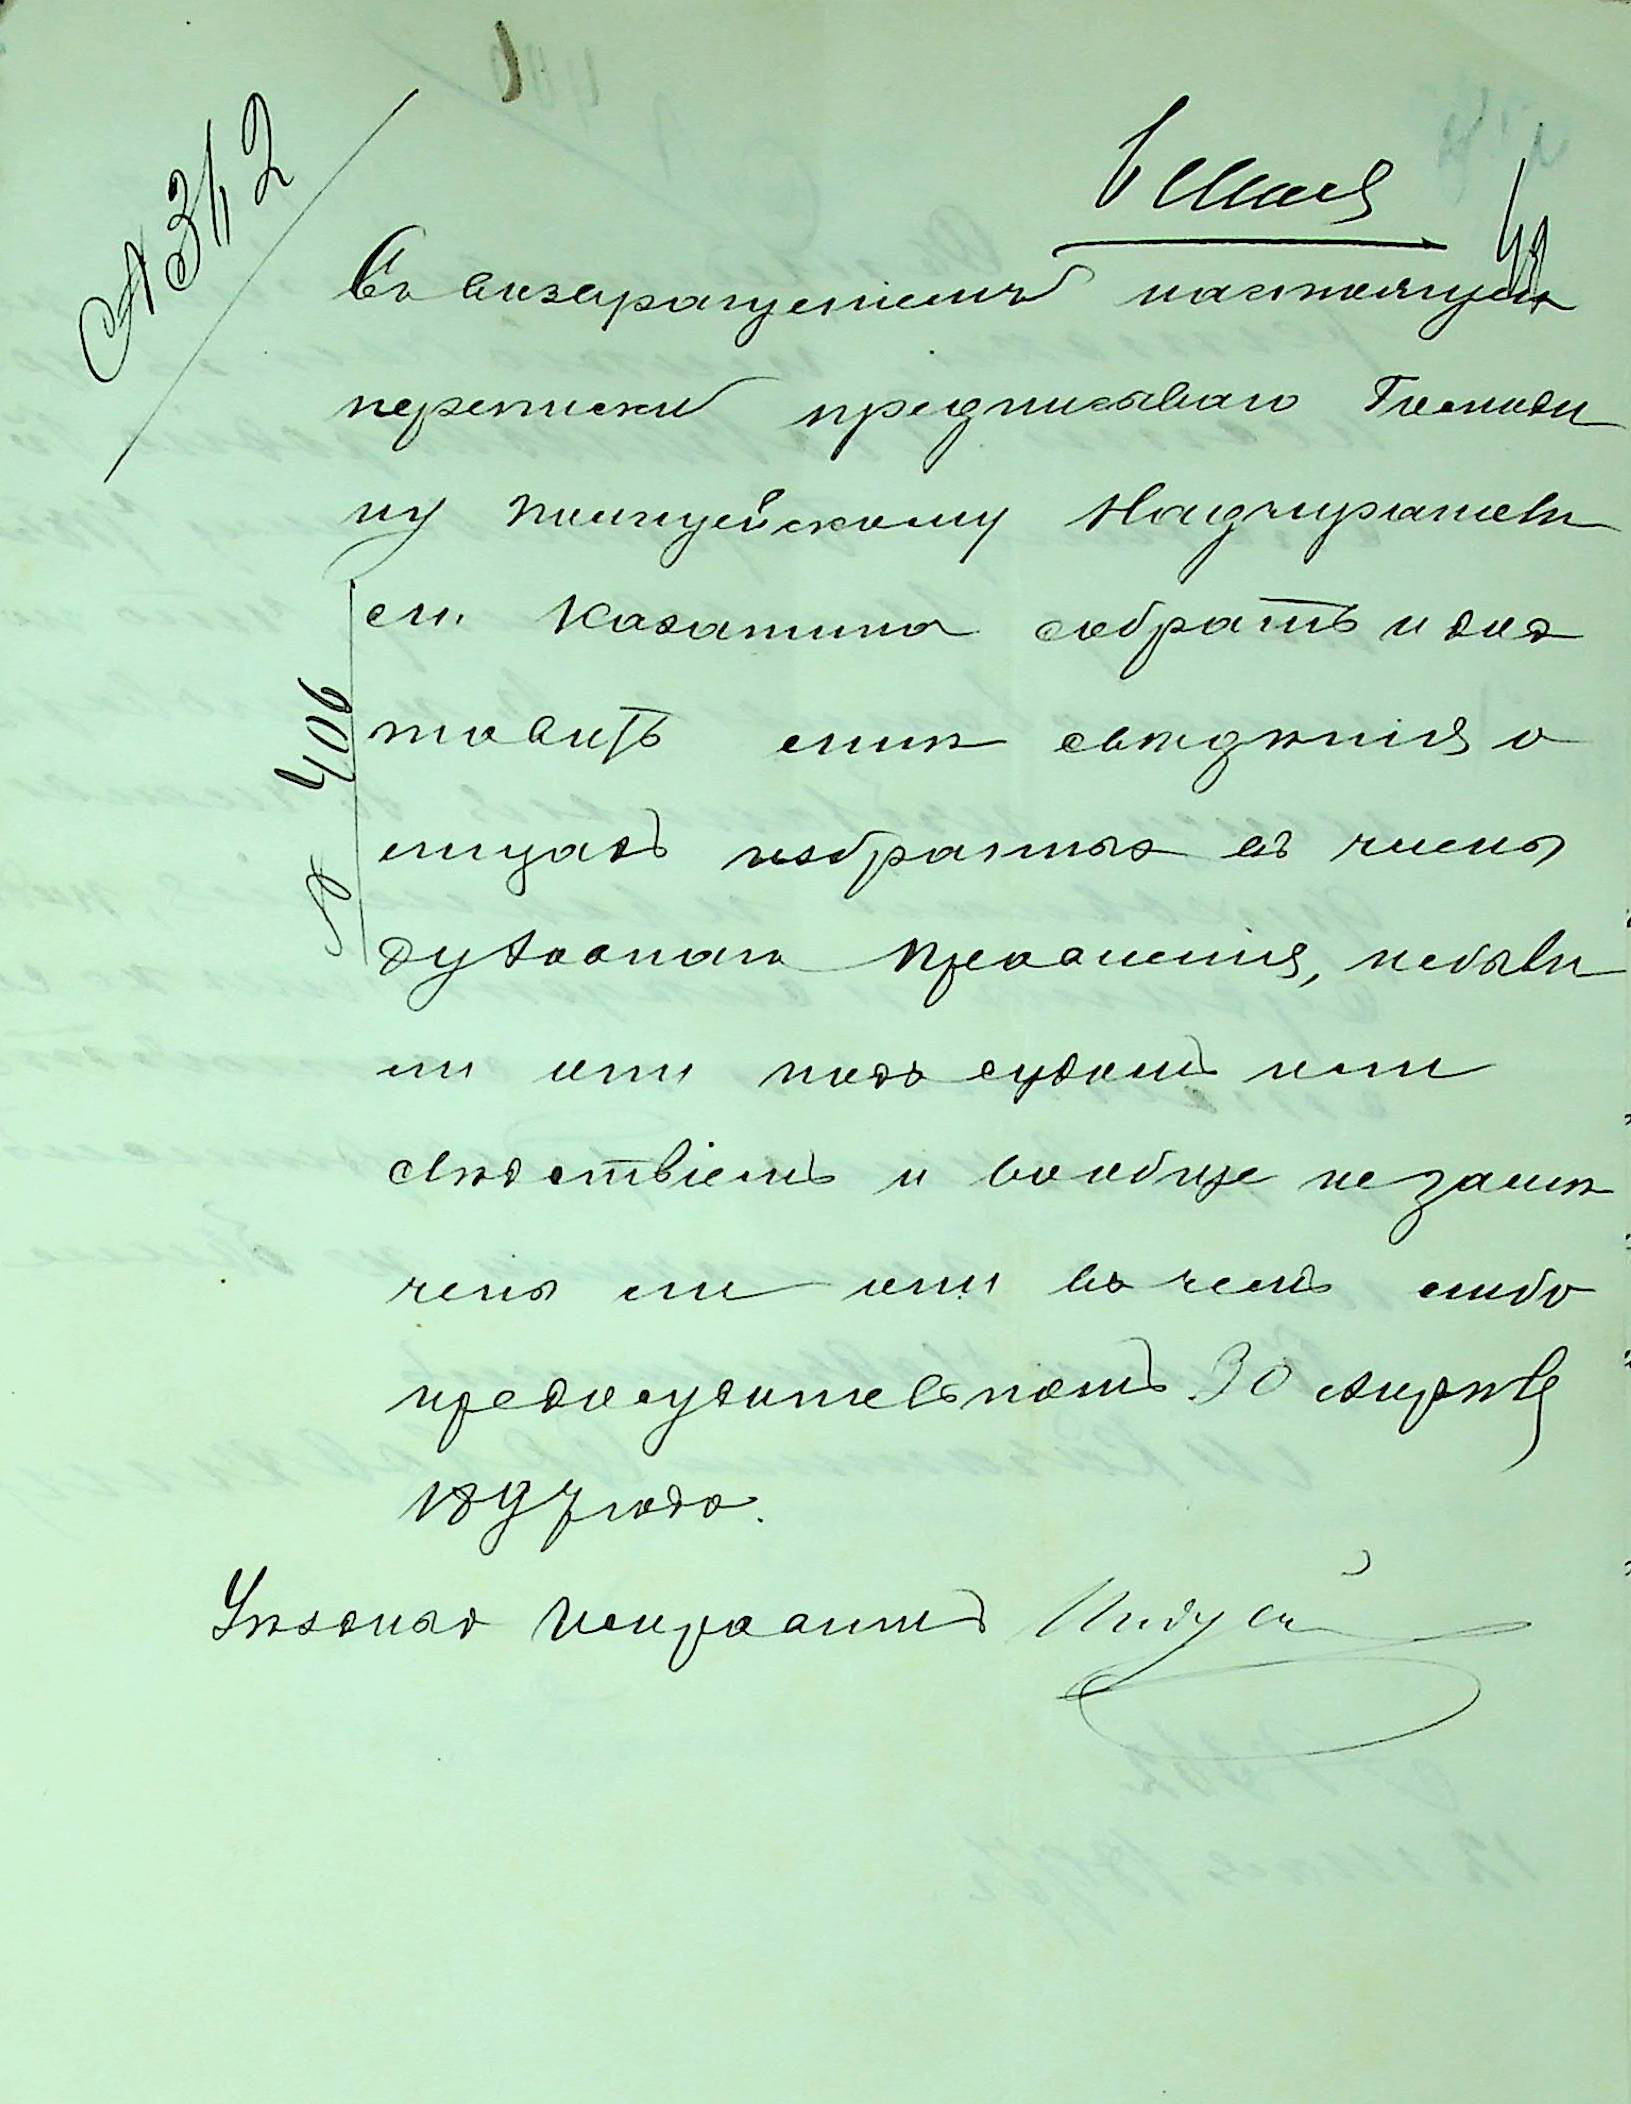 № 312
6 Мая
Съ возвращеніемъ настоящей
переписки предписываю Господи
ну Полицейскому Надзирателю
ст. Казатина собрать и дос
тавить мнѣ свѣдѣнія о
лицахъ избранныхъ въ члены
духовнаго Правленія, небыли
ли они подъ судомъ или
слѣдствіемъ и вообще не замѣ
чены ли они въ чемъ либо
предосудительномъ 30 Апрѣля
1897 года.
Уѣздный Исправникъ
№ 406